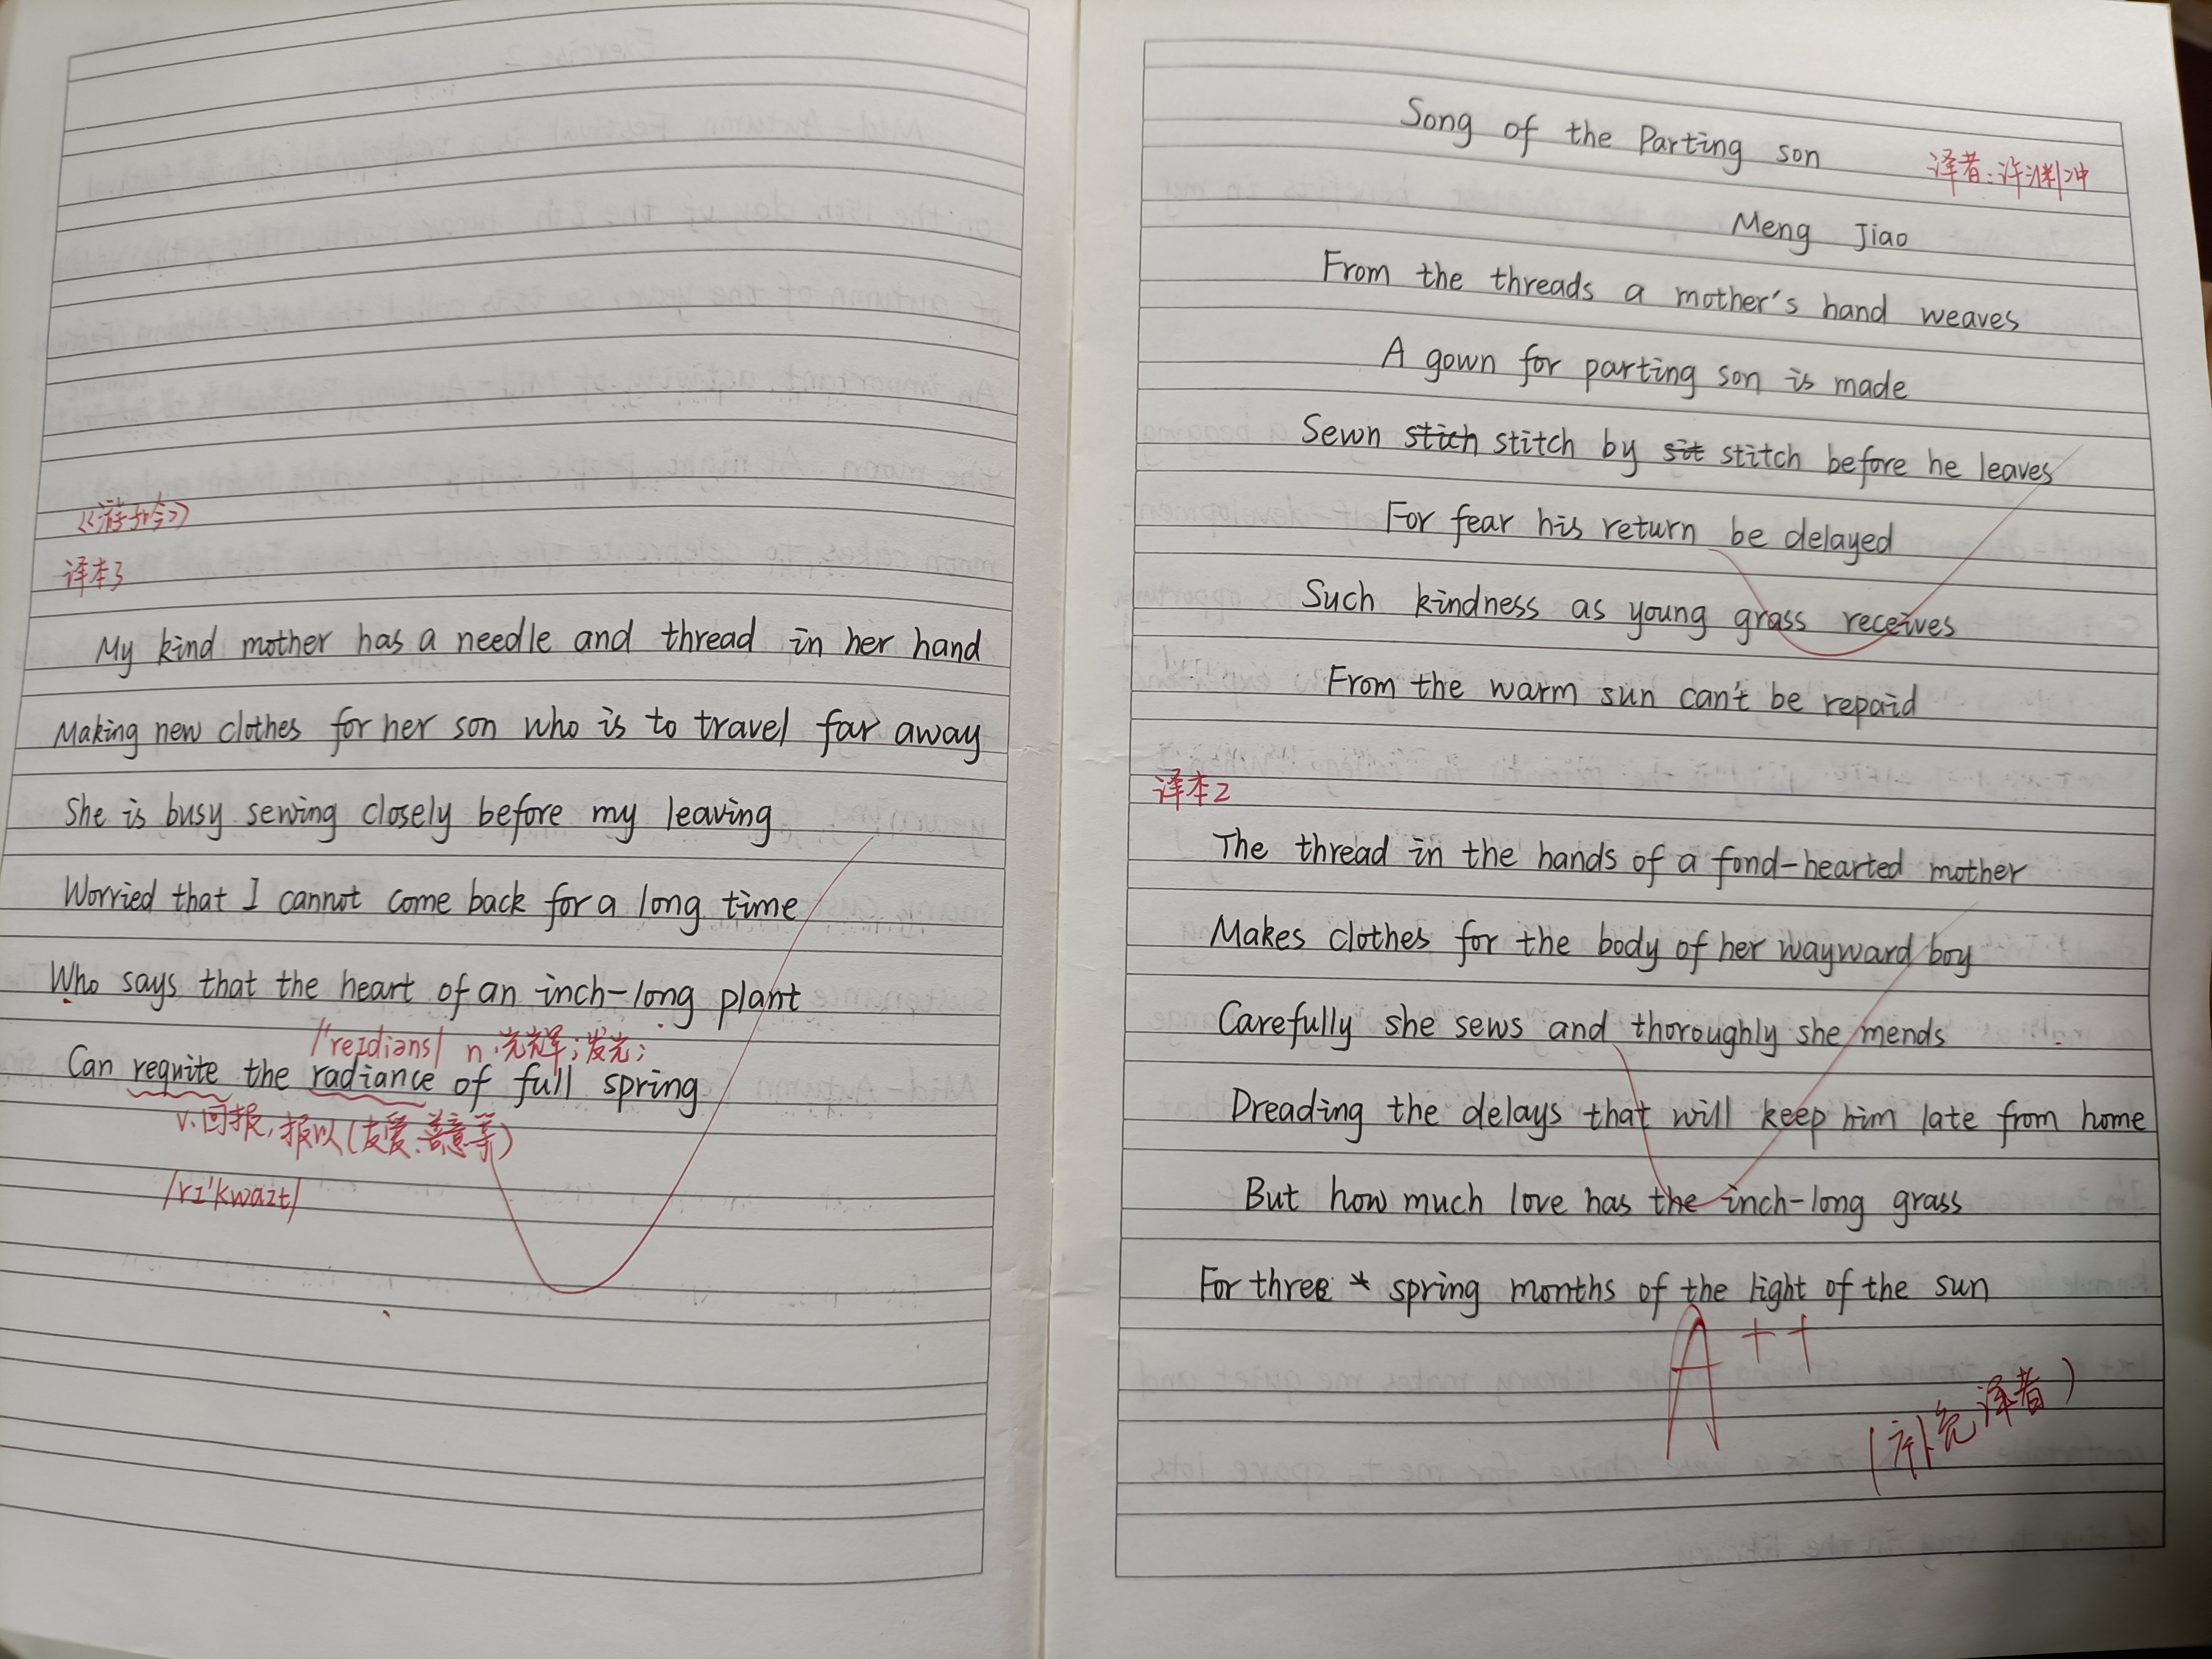 《游子吟》
译本3
My kind mother has a needle and thread in her hand
Making new clothes for her son who is to travel far away
She is busy sewing closely before my leaving
Worried that I cannot come back for a long time
Who says that the heart of an inch-long plant
/'reɪdiəns/ n.光辉;发光;
Can requite the radiance of full spring
v.回报,报以(友爱、善意等)
/rɪ'kwaɪt/
Song of the Parting son
译者:许渊冲
Meng Jiao
From the threads a mother's hand weaves
A gown for parting son is made
Sewn stich stitch by sit stitch before he leaves
For fear his return be delayed
Such kindness as young grass receives
From the warm sun can't be repaid
译本2
The thread in the hands of a fond-hearted mother
Makes clothes for the body of her wayward boy
Carefully she sews and thoroughly she mends
Dreading the delays that will keep him late from home
But how much love has the inch-long grass
For three spring months of the light of the sun
A++
(补充译者)